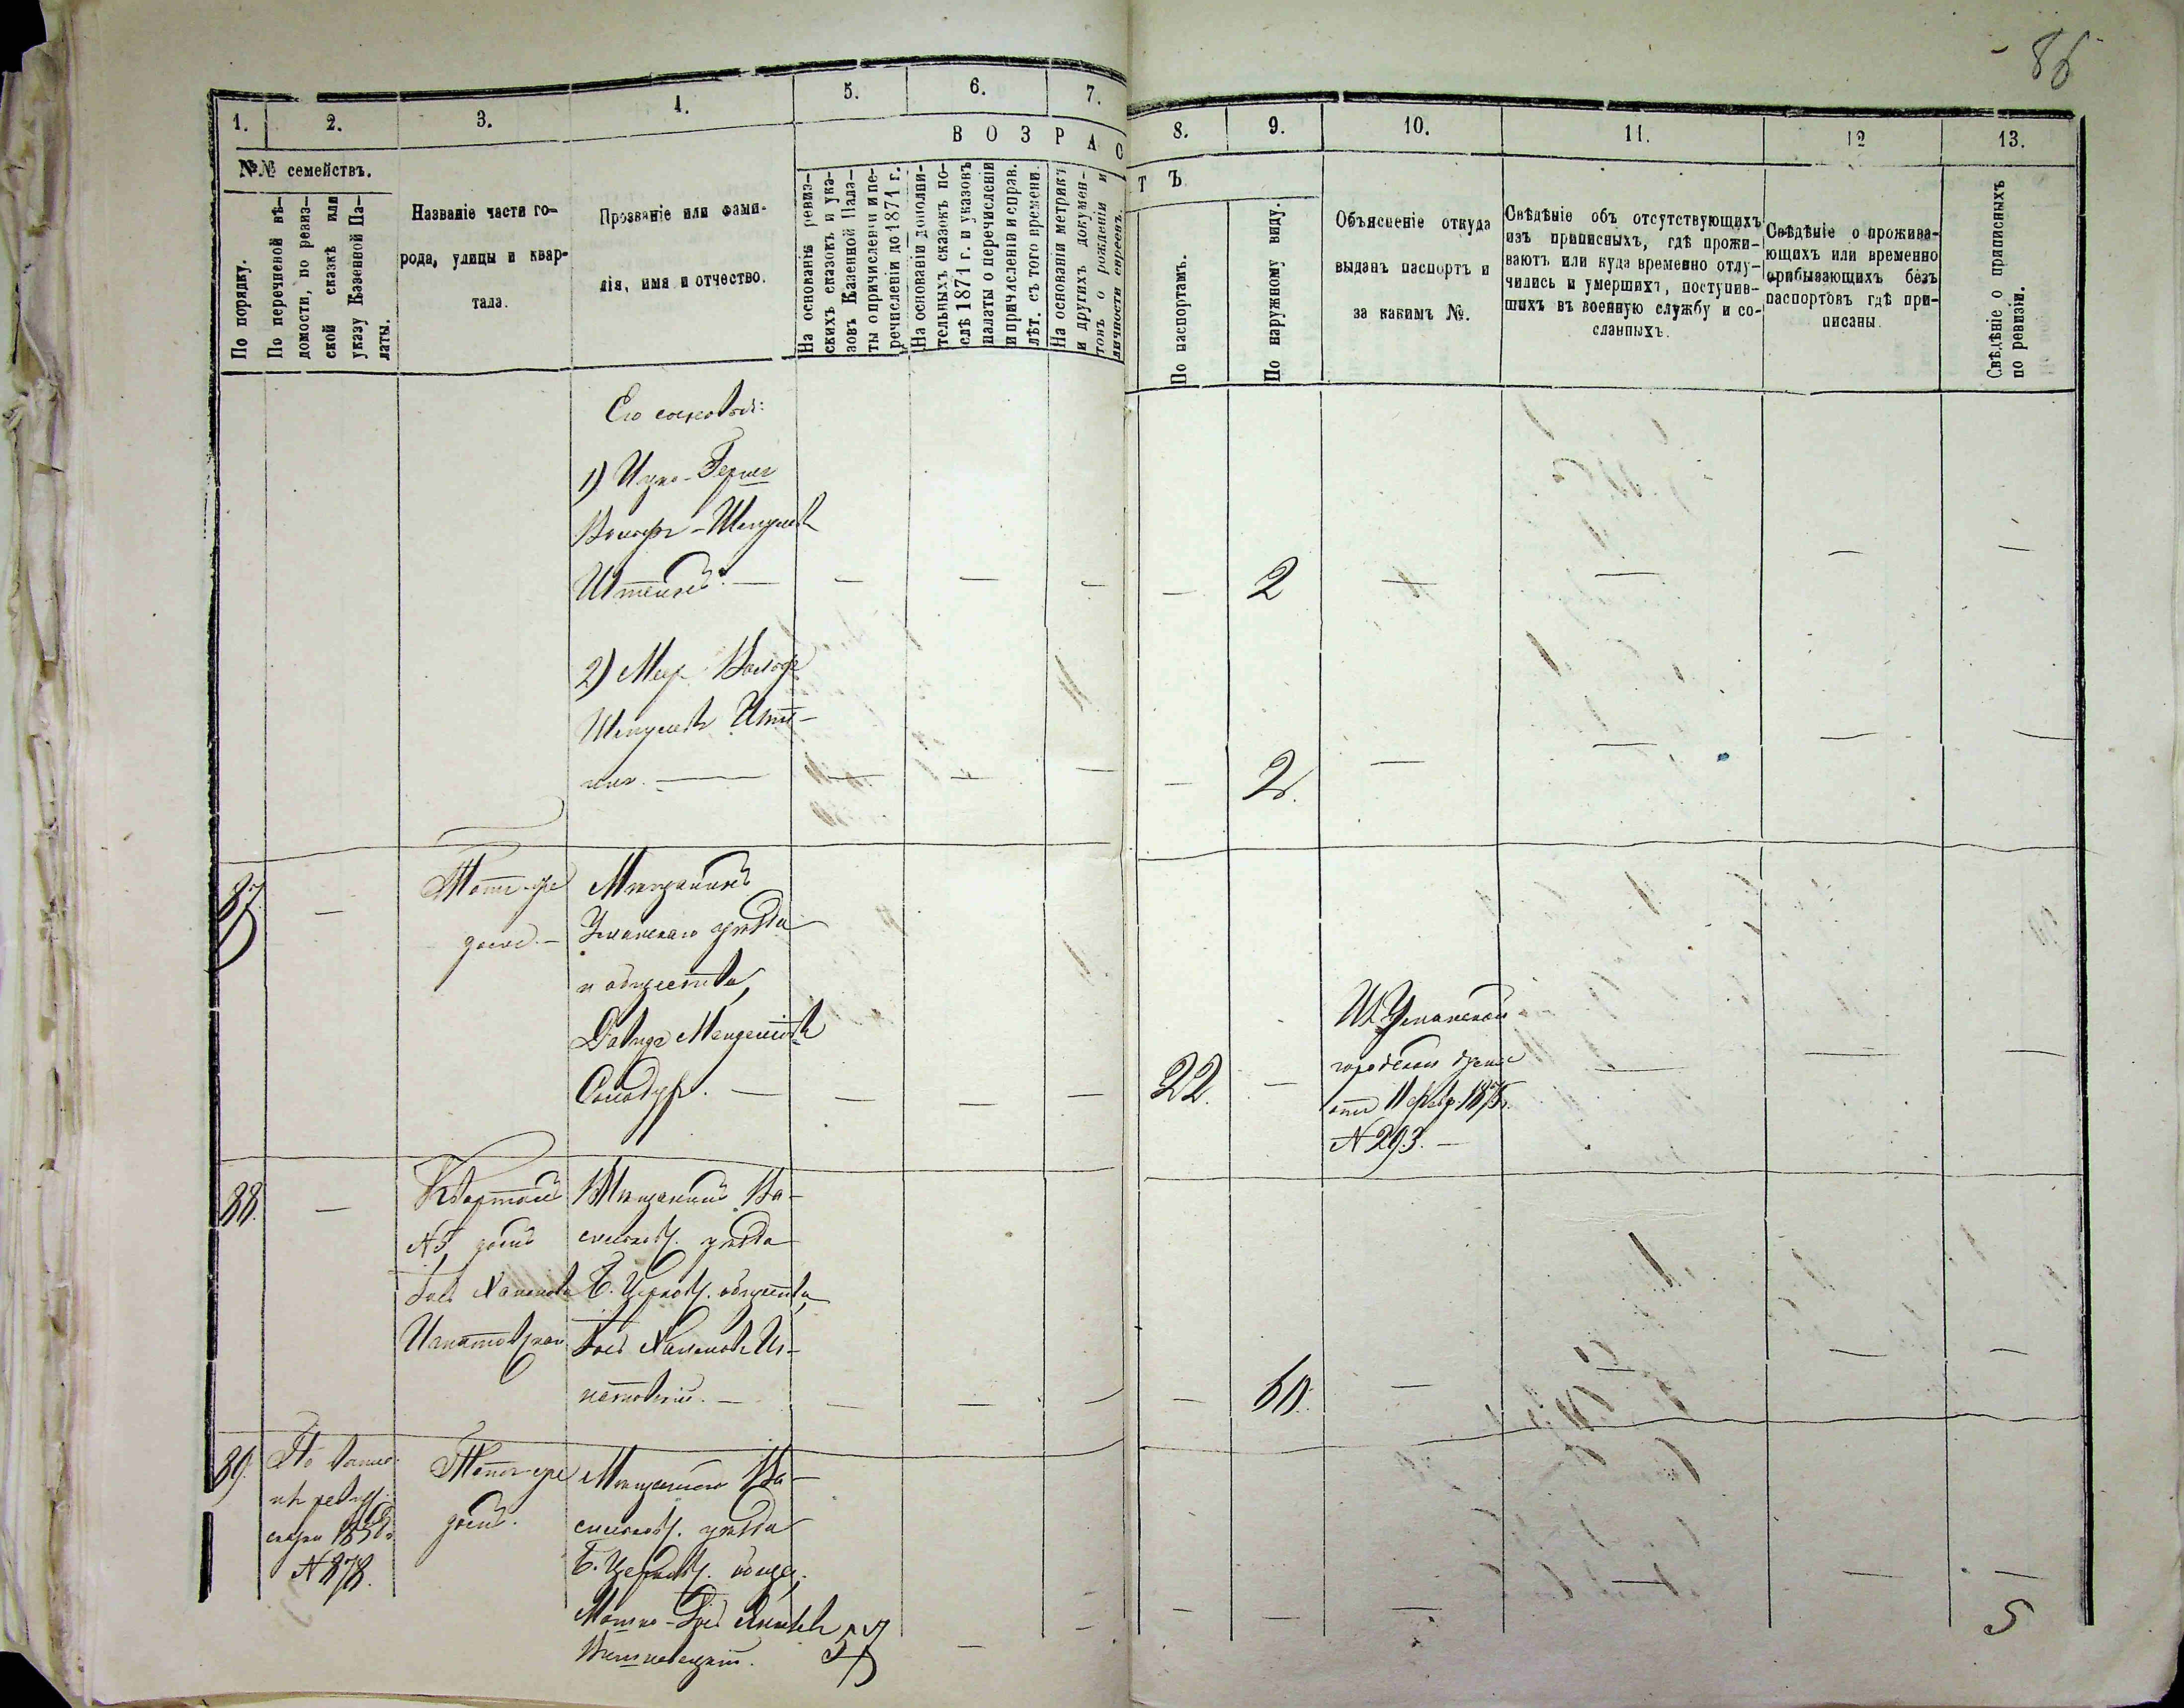 86
1. 2. 3. 4. 5. 6. 7. 8. 9. 10. 11. 12 13.
ВОЗРАСТЪ
№№ семействъ.
По порядку.
По перечневой вѣ-
домости, по ревиз-
ской сказкѣ или
указу Казенной Па-
латы.
Названіе части го-
рода, улицы и квар-
тала.
Прозваніе или фами-
лія, имя и отчество.
На основаніи ревиз-
скихъ сказокъ и ука-
зовъ Казенной Пала-
ты о причисленіи и пе-
речисленіи до 1871 г.
На основаніи дополни-
тельныхъ сказокъ по-
слѣ 1871 г. и указовъ
палаты о перечисленіи
и причисленіи и справ.
лѣт. съ того времени.
На основаніи метрикъ
и другихъ докумен-
товъ о рожденіи и
личности евреевъ.
По паспортамъ.
По наружному виду.
Объясненіе откуда
выданъ паспортъ и
за какимъ №.
Свѣдѣніе объ отсутствующихъ
изъ приписныхъ, гдѣ прожи-
ваютъ или куда временно отлу-
чились и умершихъ, поступив-
шихъ въ военную службу и со-
сланныхъ.
Свѣдѣніе о прожива-
ющихъ или временно
прибывающихъ безъ
паспортовъ гдѣ при-
писаны.
Свѣдѣніе о приписныхъ
по ревизіи.
Его сыновья:
1)
Штейнъ. — — — — — 2 — — — —
2) Меер
— — — — — 2. — — — —
87 — Тотъ-же Мѣщанинъ
домъ. — Уманскаго уѣзда
и общества,
Давидъ
— — — — 22. — Изъ Уманской
городской думы
отъ 11 февр. 1875 г.
N 293. —
88. — Кварталъ Мѣщанинъ Ва-
N 5, домъ сильков. уѣзда
Б. Церков. общества,
— — — — — 60. — — — —
89. По
ревиз.
сказки 1858 г.
N 878.
Тотъ-же Мѣщанинъ Ва-
домъ. сильков. уѣзда
Б. Церков. общ.
Мошко
Вишневецкій. 57 — — — — — — — —
5